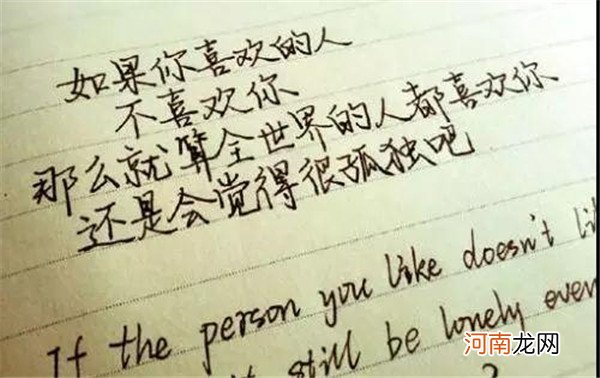 如果你喜欢的人
不喜欢你
那么就算全世界的人都喜欢你
还是会觉得很孤独吧
If the person you like doesn't
still be lonely even
河南龙网